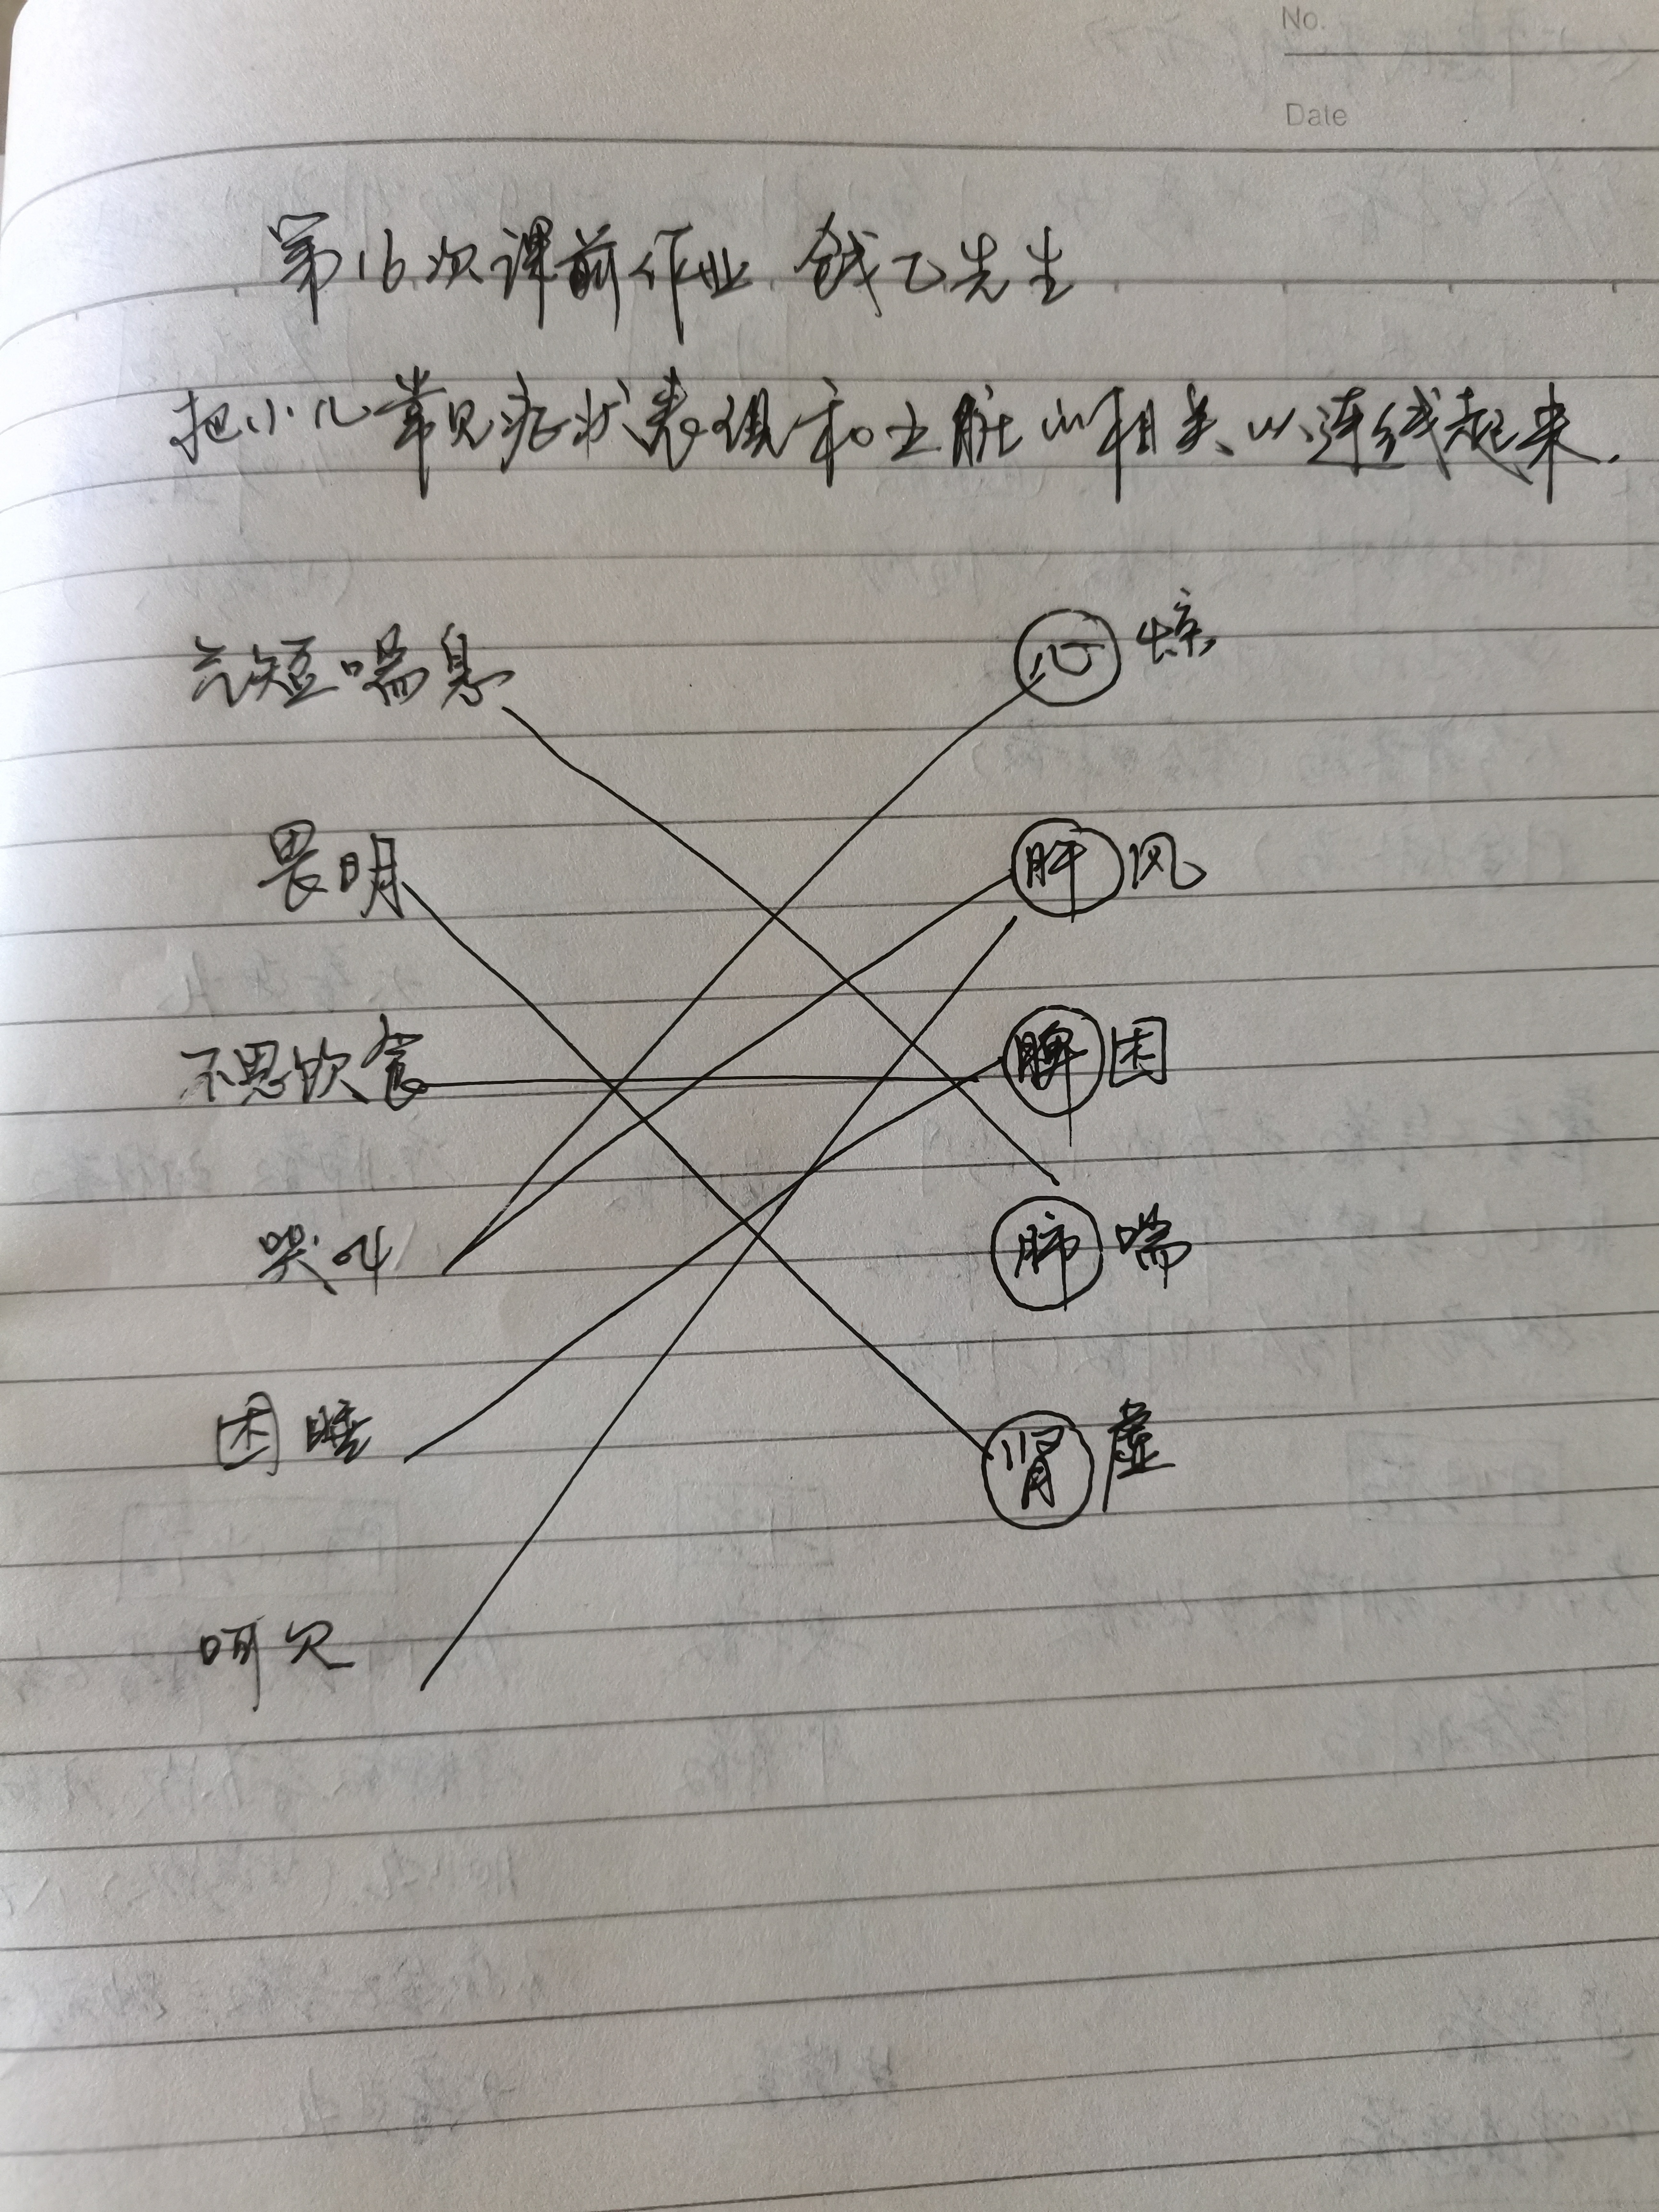 No.
Date
第16次课前作业 钱乙先生
把小儿常见症状表现和五脏的相关以连线起来.
气短喘息 心 惊
畏明 肝 风
不思饮食 脾 困
哭叫 肺 喘
困睡 肾 虚
呵欠